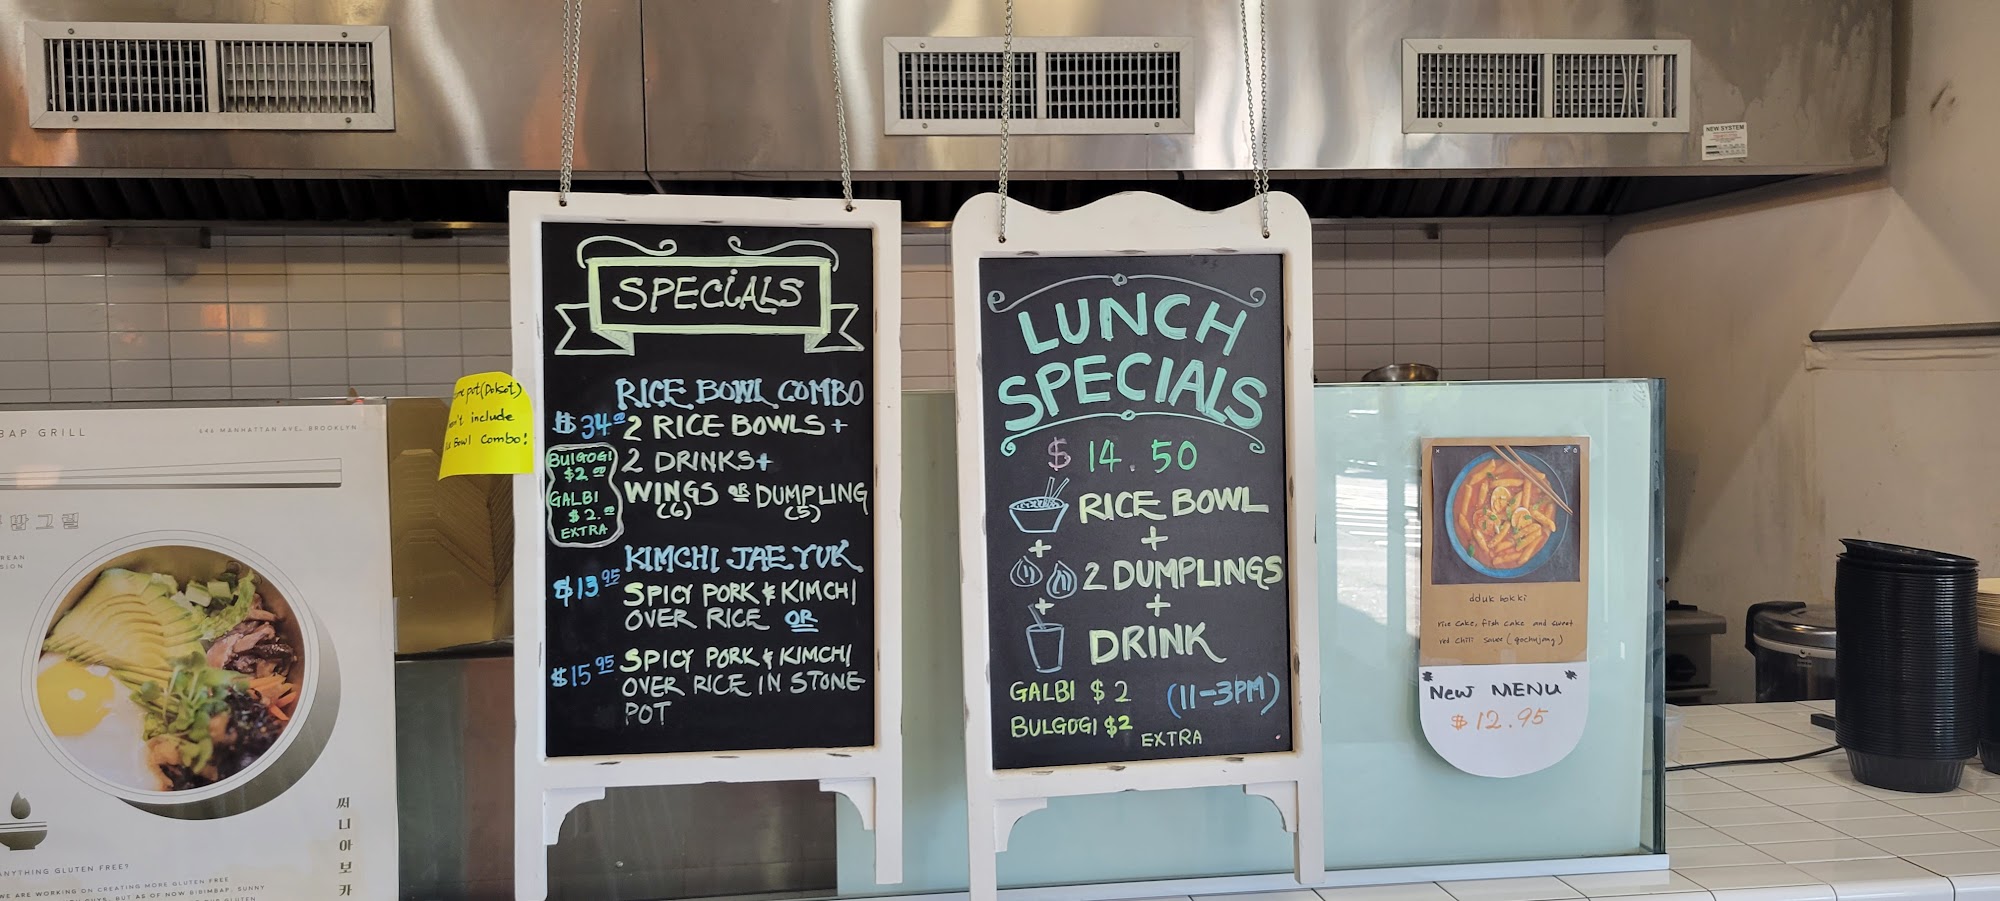 NEW SYSTEM
BAP GRILL
646 MANHATTAN AVE, BROOKLYN
밥그릴
써니아보카
ANYTHING GLUTEN FREE?
WE ARE WORKING ON CREATING MORE GLUTEN FREE
BUT AS OF NOW BIBIMBAP, SUNNY
GLUTEN
pot(Dolsot)
include
Bowl Combo!
SPECiALS
RICE BOWL COMBO
$34.00 2 RICE BOWLS +
2 DRINKS+
WINGS OR DUMPLING
(6) (5)
BULGOGI
$2.00
GALBI
$2.00
EXTRA
KIMCHI JAE YUK
$13.95 SPICY PORK & KIMCHI
OVER RICE OR
$15.95 SPICY PORK & KIMCHI
OVER RICE IN STONE
POT
LUNCH
SPECIALS
$14.50
RICE BOWL
+
+
2 DUMPLINGS
+
+
DRINK
GALBI $2 (11-3PM)
BULGOGI $2
EXTRA
dduk bokki
rice cake, fish cake and sweet
red chili sauce (gochujang)
New MENU
$12.95